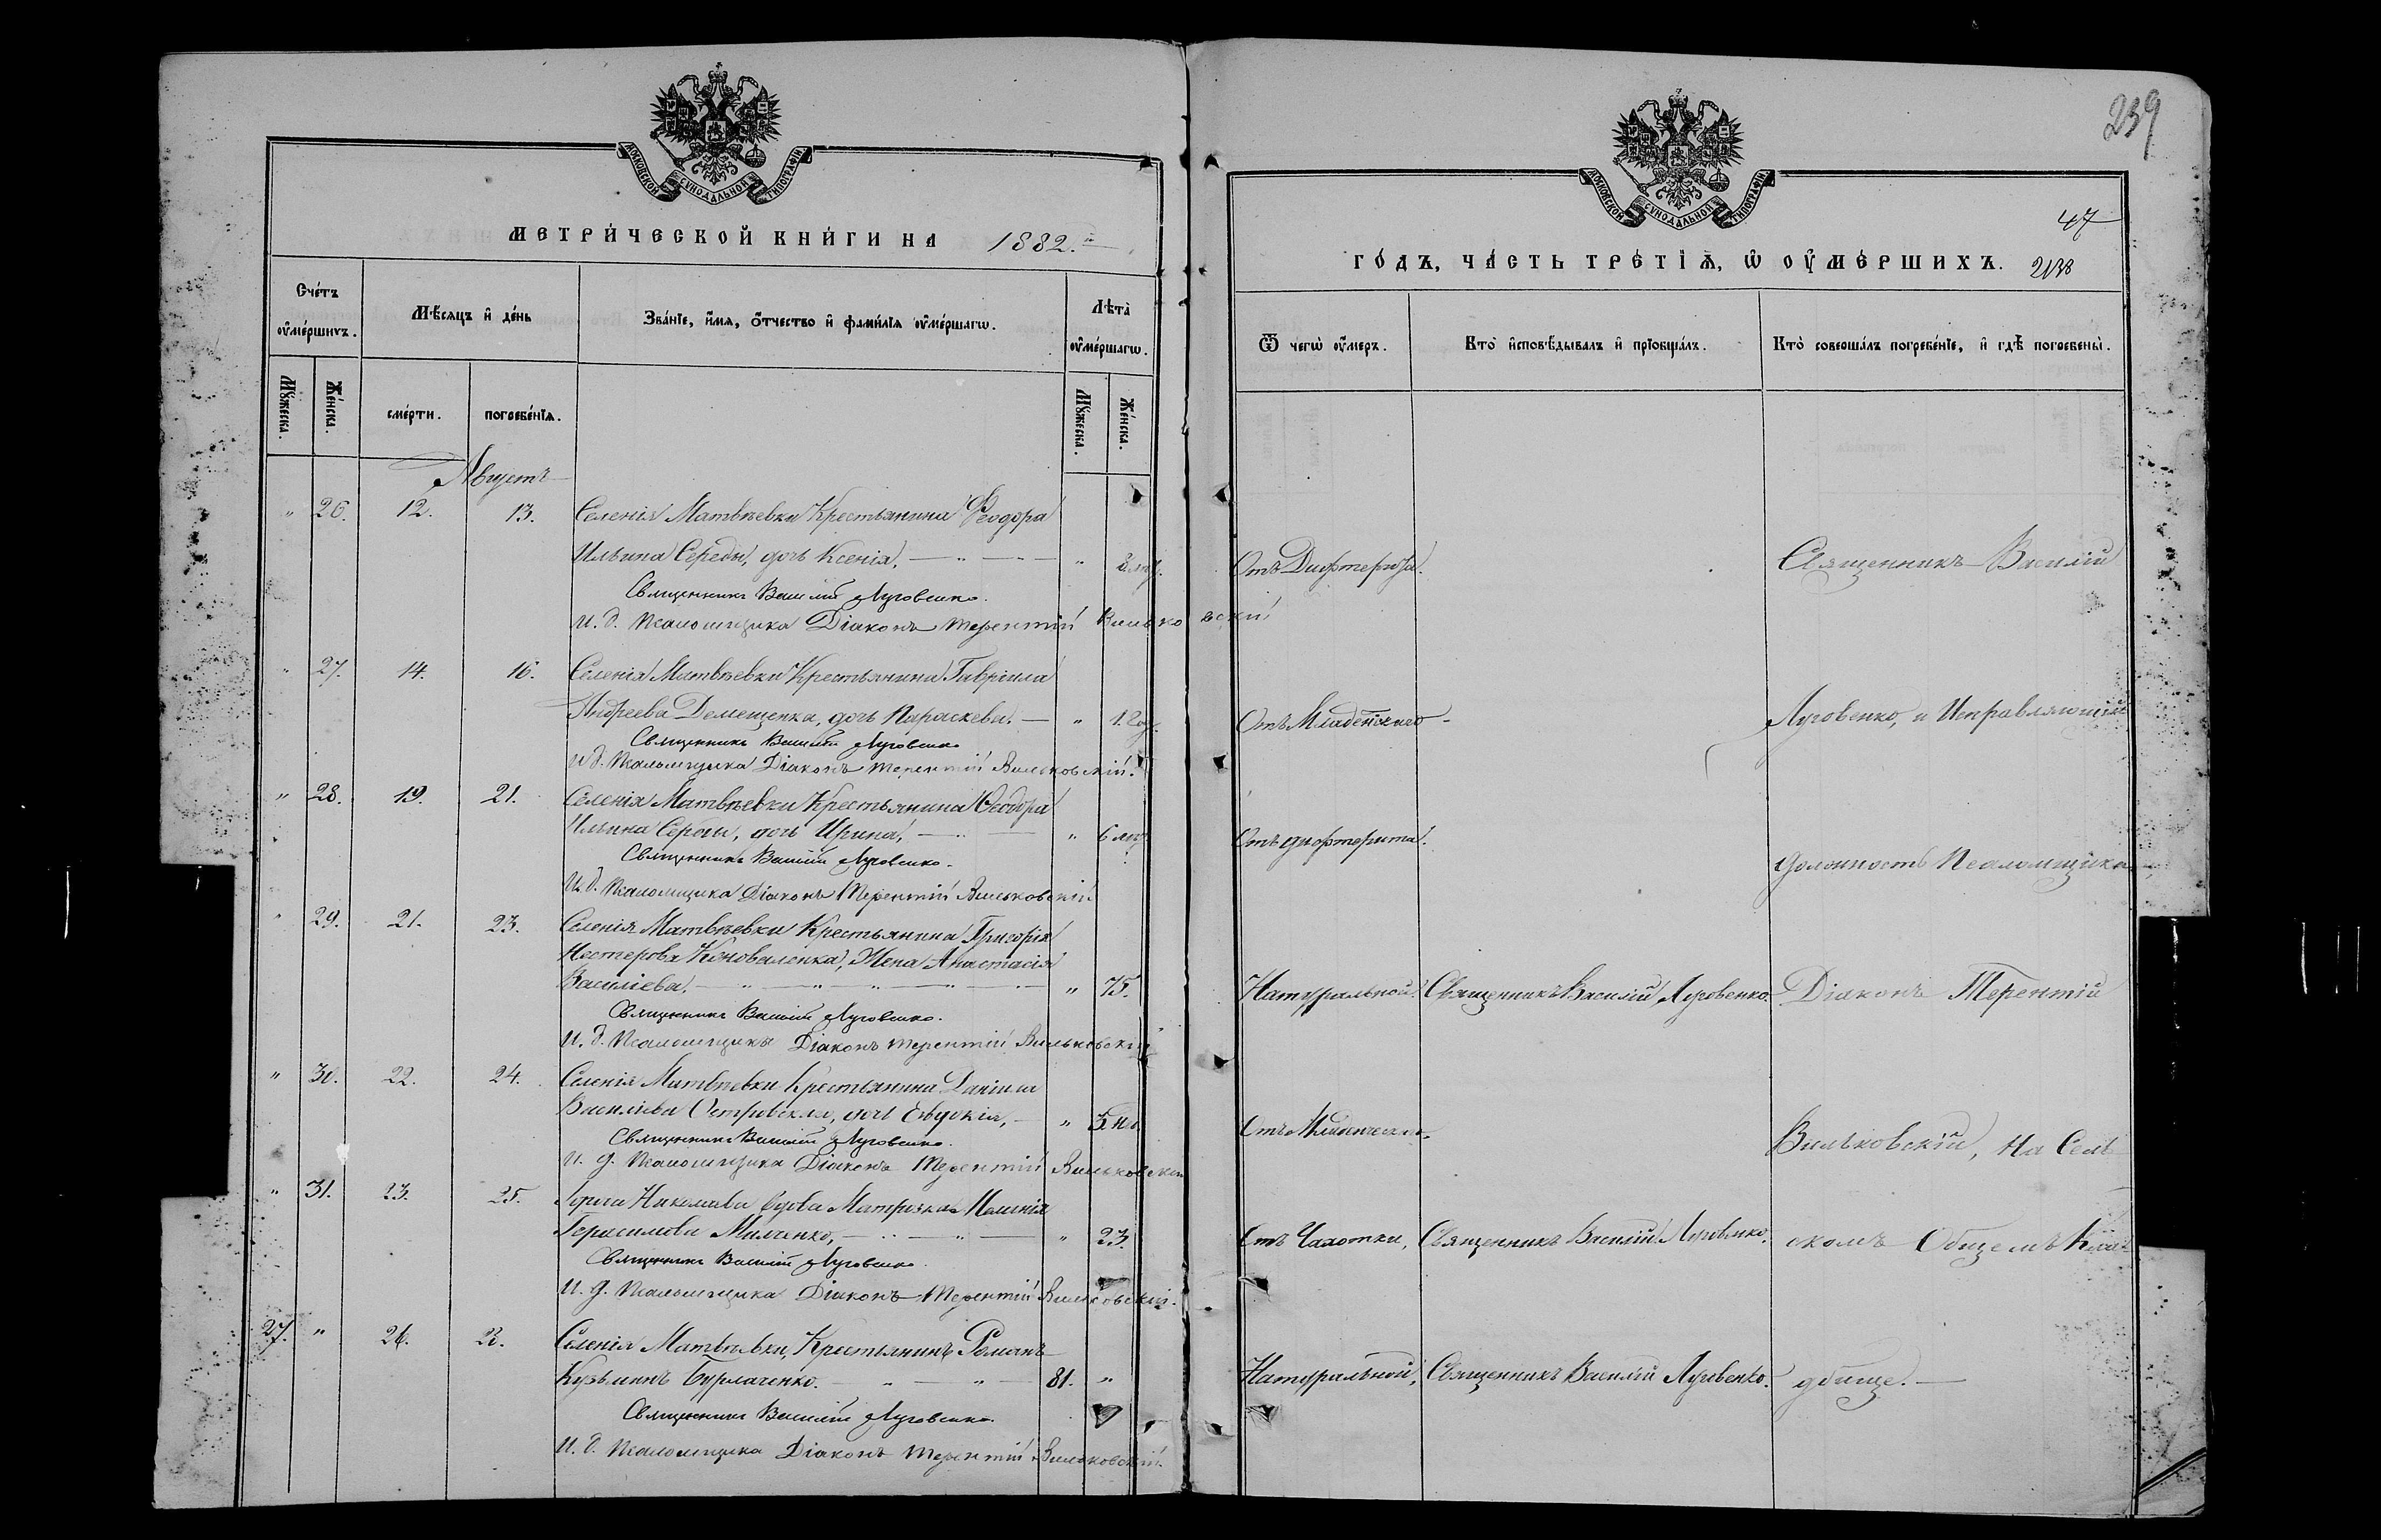 МОСКОВСКОЙ СѴНОДАЛЬНОЙ ТИПОГРАФІИ
МЕТРИ́ЧЕСКОЙ КНИ́ГИ НА 1882.й
Сче́тъ ᲂу҆ме́ршихъ.
Мѣ́сяцъ и҆ де́нь
Зва́нїе, и҆́мѧ, ѻ҆́тчество и҆ фами́лїѧ ᲂу҆ме́ршагѡ.
Лѣ́та ᲂу҆ме́ршагѡ.
Мꙋ́жеска.
Же́нска.
сме́рти.
погребе́нїѧ.
Мꙋ́жеска.
Же́нска.
Августъ
" 26. 12. 13. Селенія Матвѣевки Крестьянина Ѳеодора
Ильина Середы, дочь Ксенія, "
Священникъ Василій Луговенко.
И. д. Псаломщика Діаконъ Терентій Вильковскій
" 27. 14. 16. Селенія Матвѣевки Крестьянина Гавріила
Андреева Демещенка, дочь Параскева. " 1. год.
Священникъ Василій Луговенко
И д. Псаломщика Діаконъ Терентій Вильковскій.
" 28. 19. 21. Селенія Матвѣевки Крестьянина Ѳеодора
Ильина Середы, дочь Ирина, " 6 лѣт.
Священникъ Василій Луговенко.
И. д. Псаломщика Діаконъ Терентій Вильковскій
" 29. 21. 23. Селенія Матвѣевки Крестьянина Григорія
Нестерова Коноваленка, Жена Анастасія
Василіева. " 75.
Священникъ Василій Луговенко.
И. д. Псаломщика Діаконъ Терентій Вильковскій
" 30. 22. 24. Селенія Матвѣевки Крестьянина Даніила
Василіева Островскаго, дочь Евдокія, "
Священникъ Василій Луговенко.
И. д. Псаломщика Діаконъ Терентій Вильковскій
" 31. 23. 25. Города Николаева вдова Матроска
Герасимова Милченко, " 23.
Священникъ Василій Луговенко.
И. д. Псаломщика Діаконъ Терентій Вильковскій.
27. " 26. Селенія Матвѣевки, Крестьянинъ Романъ
Кузьминъ Бурлаченко. 81. "
Священникъ Василій Луговенко.
И. д. Псаломщика Діаконъ Терентій Вильковскій.
239
МОСКОВСКОЙ СѴНОДАЛЬНОЙ ТИПОГРАФІИ
47
ГО́ДЪ, ЧА́СТЬ ТРЕ́ТІѦ, Ѡ ОУ҆МЕ́РШИХЪ.
Ѿ чегѡ̀ ᲂу҆́меръ.
Кто̀ и҆сповѣ́дывалъ и҆ прїобща́лъ.
Кто̀ соверша́лъ погребе́нїе, и҆ гдѣ̀ погребены̀.
Отъ Дифтерита.
Священникъ Василій
Отъ Младенческаго
Луговенко, и Исправляющій
Отъ дифтерита.
должность Псаломщика
Натуральной. Священникъ Василій Луговенко. Діаконъ Терентій
Отъ Младенческаго.
Вильковскій, на Сель
Отъ Чахотки, Священникъ Василій Луговенко. скомъ Общемъ Кла
Натуральной, Священникъ Василій Луговенко. дбище.